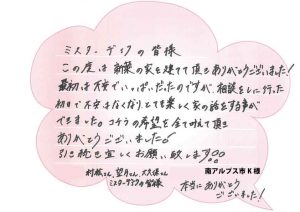 ミスターデイクの皆様
この度は新築の家を建てて頂きありがとうございました!
最初は不安でいっぱいだったのですが、相談をしに行った
初日で不安はなくなりとても楽しく家の話をする事が
できました。コチラの希望を全て叶えて頂き
ありがとうございました。
引き続き宜しくお願い致します。
南アルプス市K様
村松さん、望月さん、大久保さん
ミスターデイクの皆様
本当にありがとう
ございました!